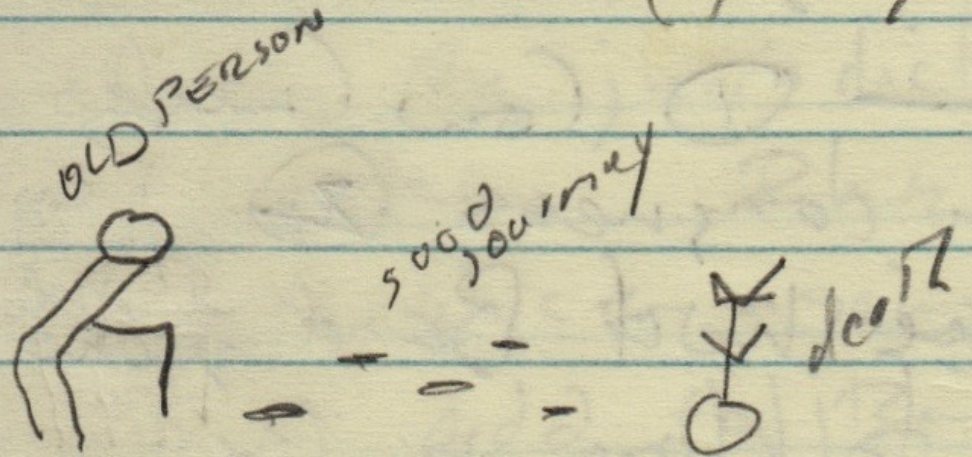 OLD PERSON
good
journey
death